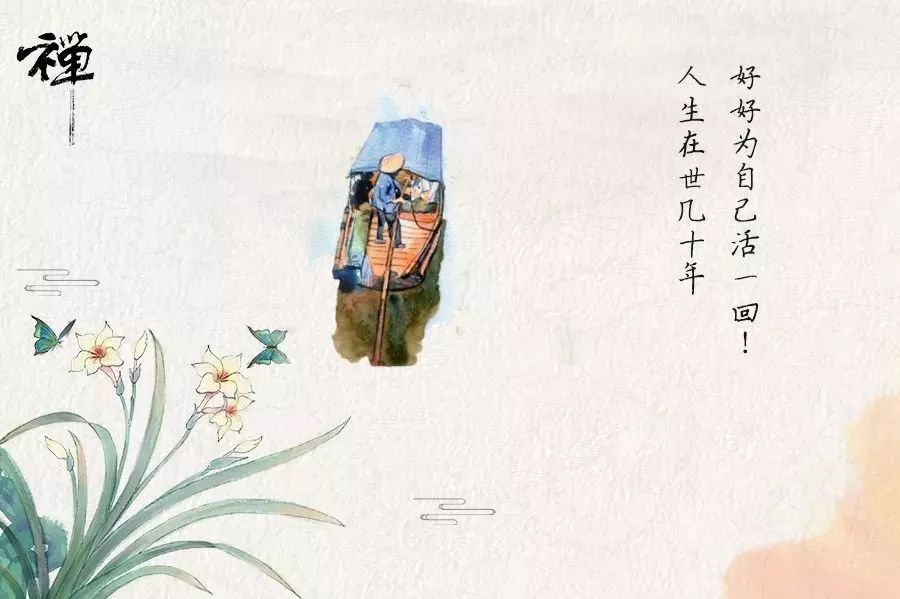 禅
人生在世几十年
好好为自己活一回！